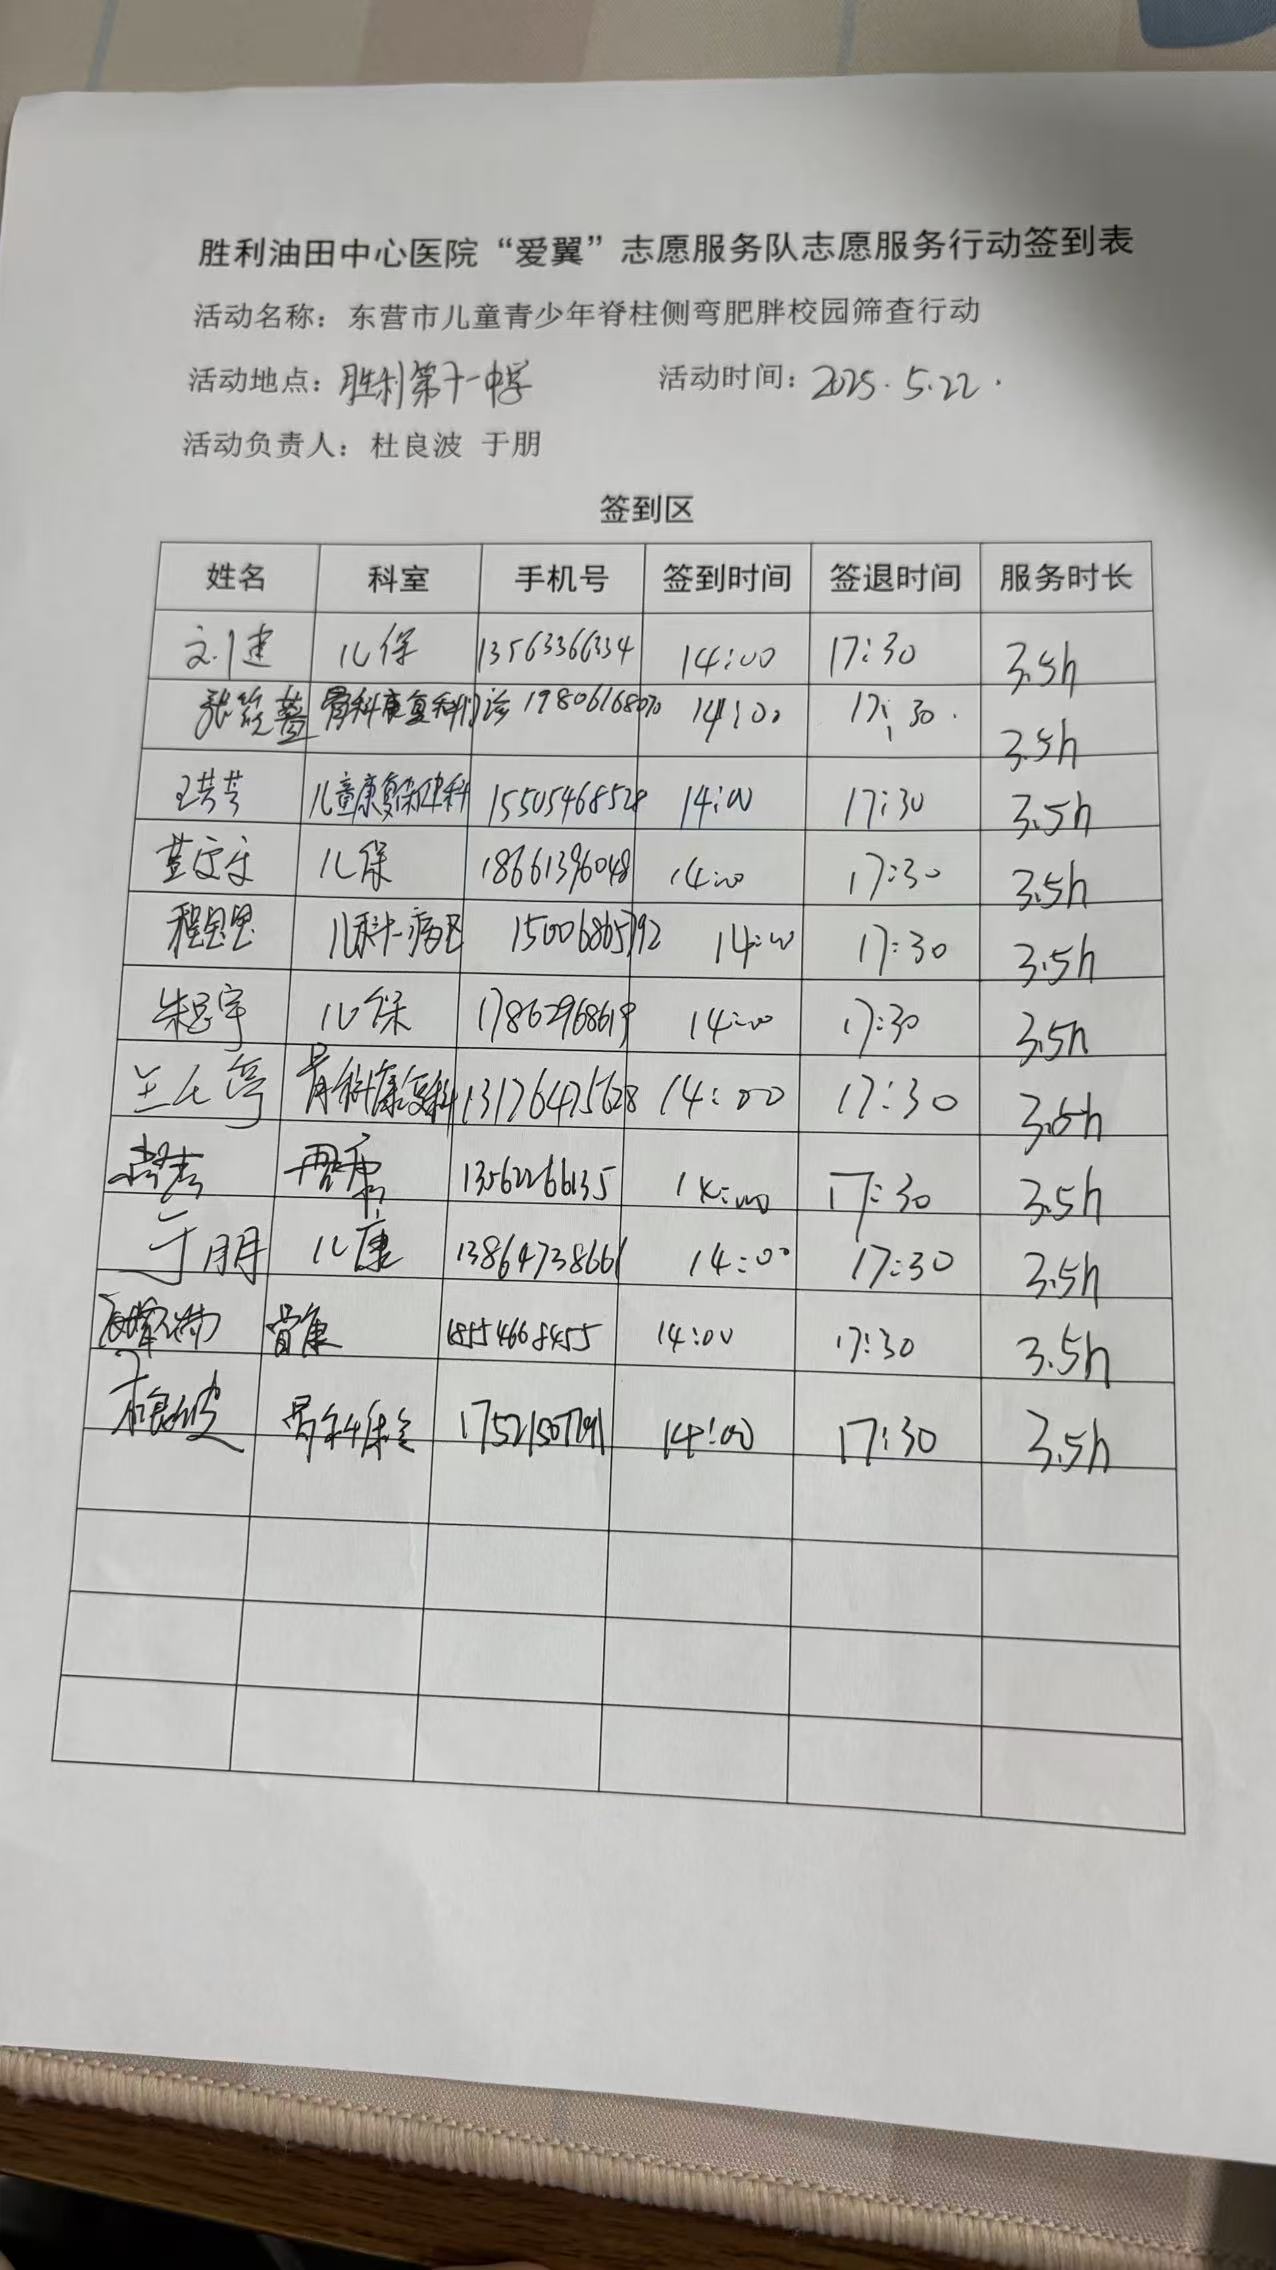 胜利油田中心医院“爱翼”志愿服务队志愿服务行动签到表
活动名称：东营市儿童青少年脊柱侧弯肥胖校园筛查行动
活动地点：胜利第十一中学 活动时间：2025.5.22.
活动负责人：杜良波 于朋
签到区
姓名 科室 手机号 签到时间 签退时间 服务时长
刘建 儿保 13563366334 14:00 17:30 3.5h
张筱蔓 骨科康复科门诊 19806168070 14:00 17:30. 3.5h
王芸芸 儿童康复保健科 15505468528 14:00 17:30 3.5h
董宁宁 儿保 18661396048 14:00 17:30 3.5h
程思思 儿科一病区 15006865792 14:00 17:30 3.5h
朱思宇 儿保 17862968619 14:00 17:30 3.5h
骨科康复科 13176475628 14:00 17:30 3.5h
13562266135 14:00 17:30 3.5h
于朋 儿康 13864738661 14:00 17:30 3.5h
骨康 18554668455 14:00 17:30 3.5h
杜良波 14:00 17:30 3.5h